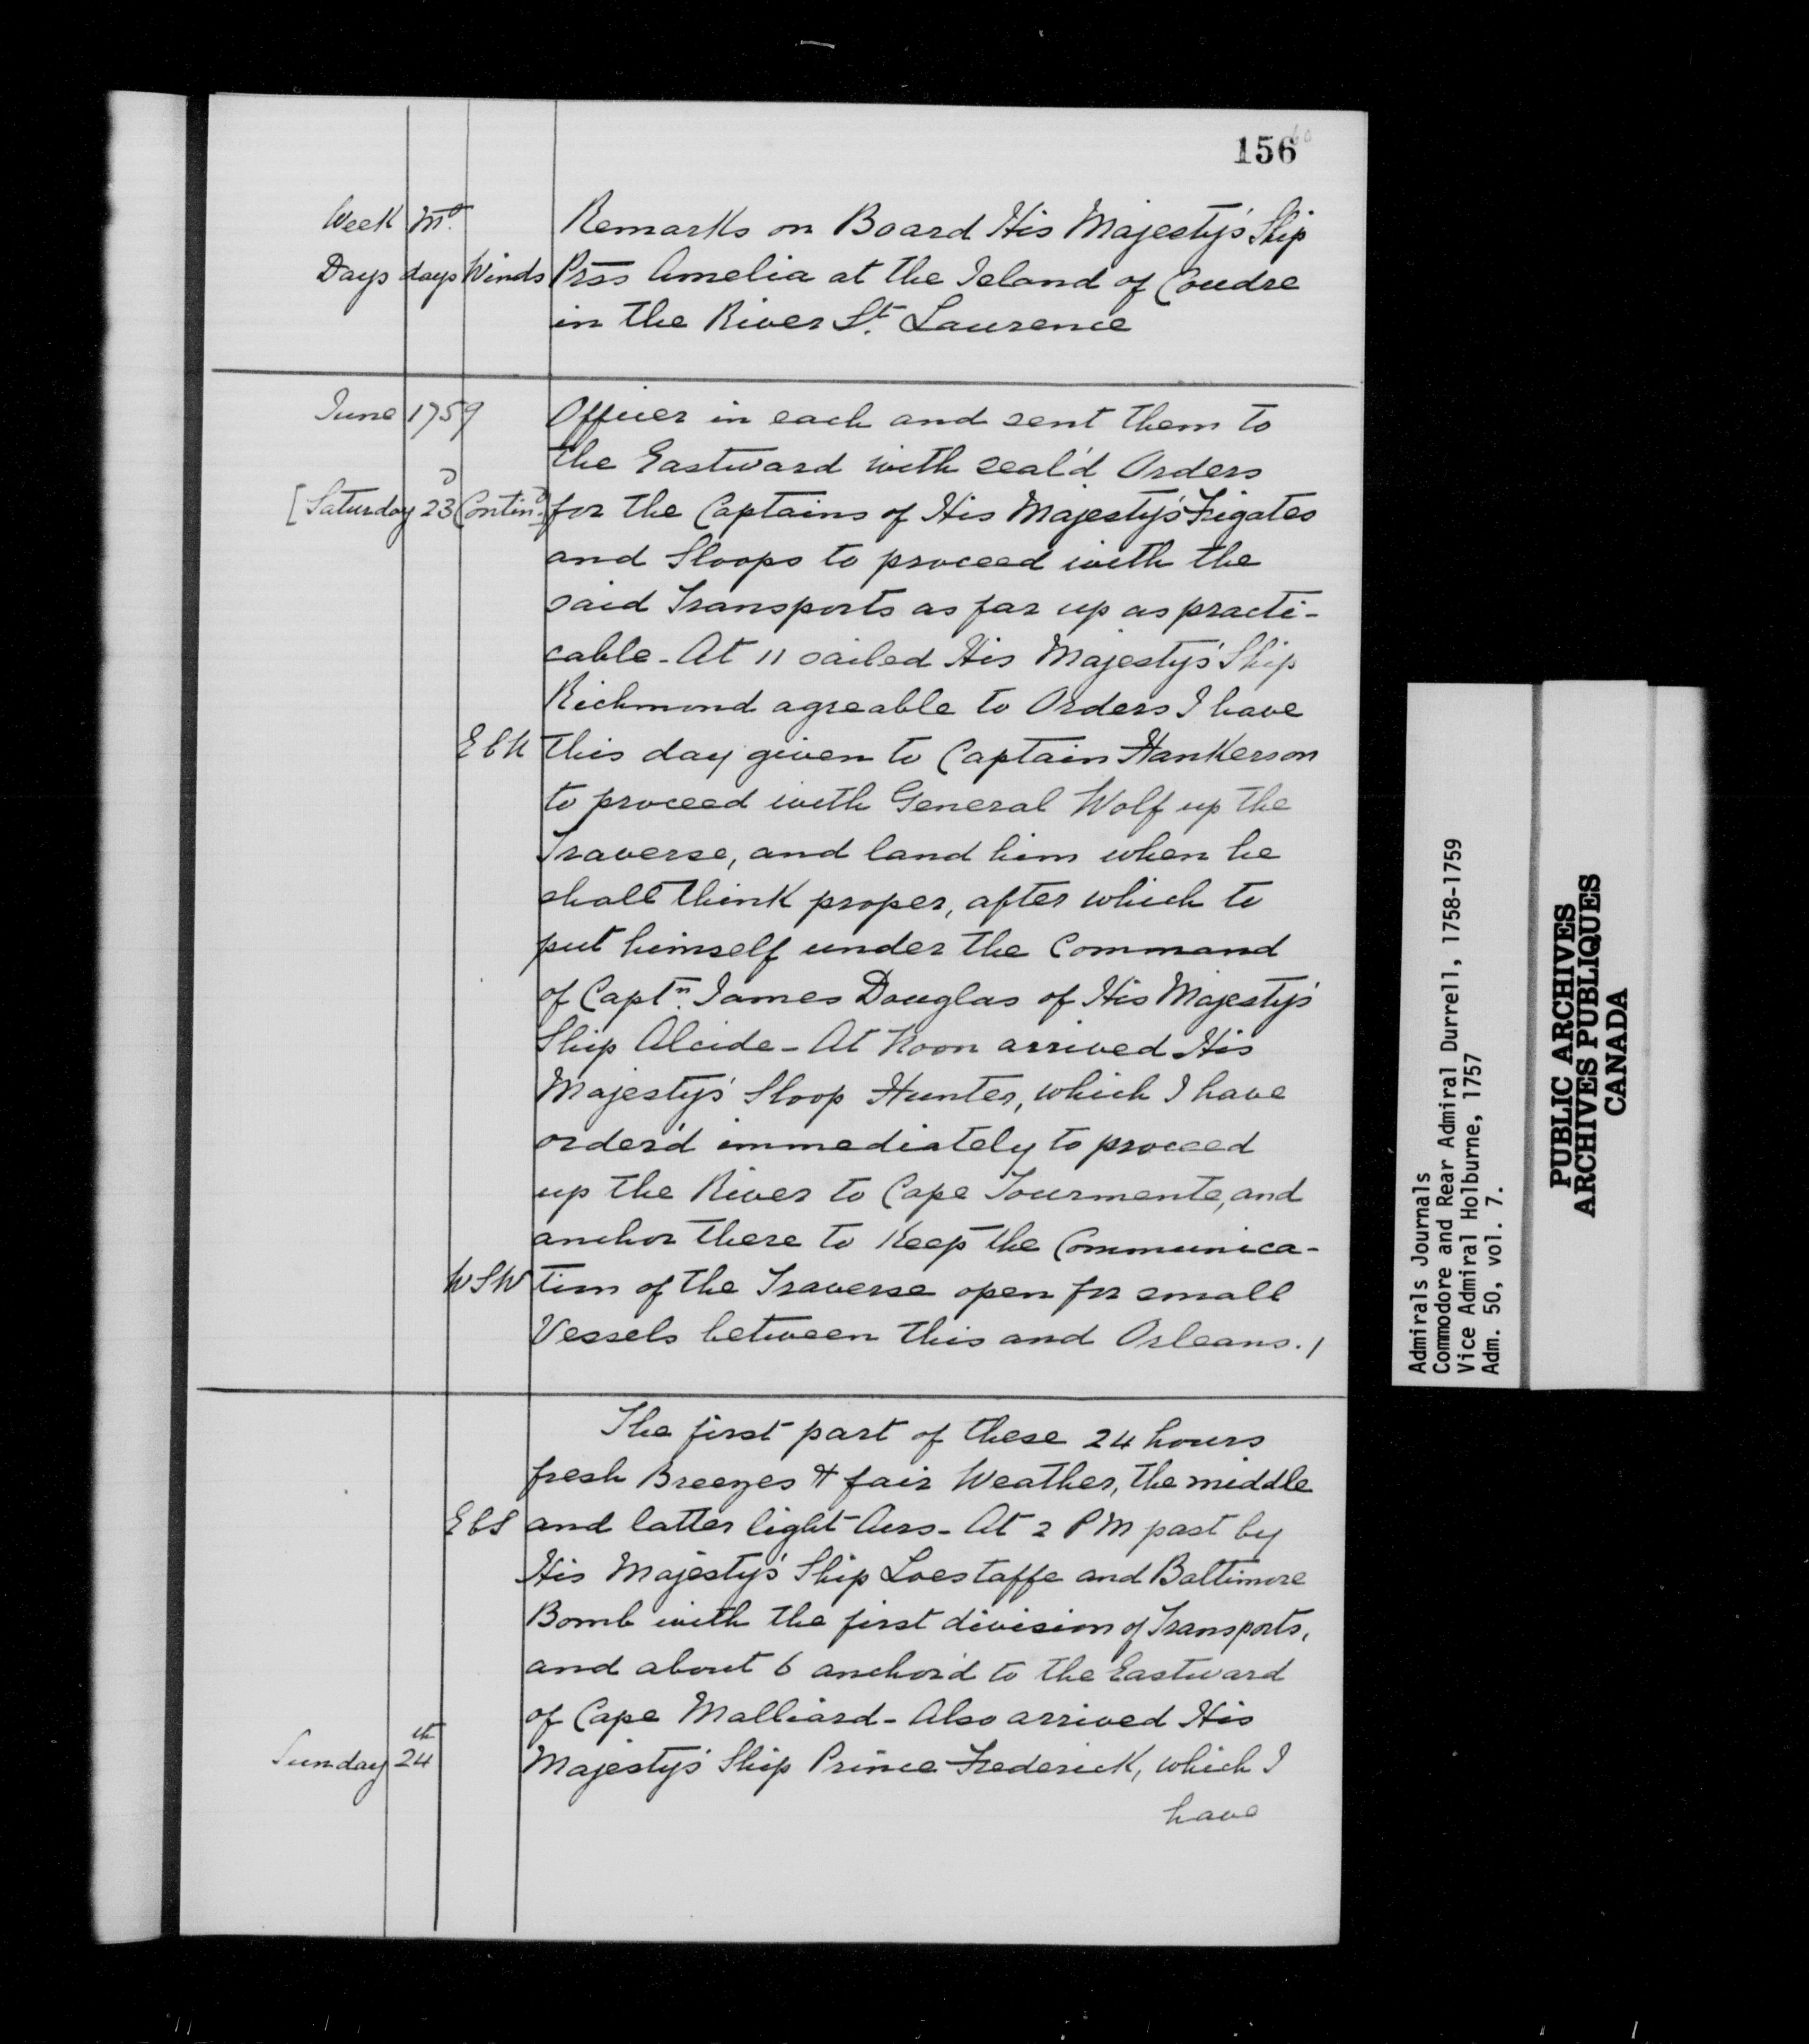 156
Week Mo. Remarks on Board His Majesty's Ship
Days days Winds Prss Amelia at the Island of Coudre
in the River St. Laurence
June 1759 Officer in each and sent them to
the Eastward with seal'd Orders
[Saturday 23d Contind.] for the Captains of His Majesty's Frigates
and Sloops to proceed with the
said Transports as far up as practi-
cable - At 11 sailed His Majesty's Ship
Richmond agreable to Orders I have
E b N this day given to Captain Hankerson
to proceed with General Wolf up the
Traverse, and land him when he
shall think proper, after which to
put himself under the Command
of Captn. James Douglas of His Majesty's
Ship Alcide - At Noon arrived His
Majesty's Sloop Hunter, which I have
order'd immediately to proceed
up the River to Cape Tourmente, and
anchor there to Keep the Communica-
WSW tion of the Traverse open for small
Vessels between this and Orleans. /
The first part of these 24 hours
fresh Breezes & fair Weather, the middle
E b S and latter light Airs - At 2 PM past by
His Majesty's Ship Loestaffe and Baltimore
Bomb with the first division of Transports,
and about 6 anchor'd to the Eastward
of Cape Malliard - Also arrived His
Sunday 24th Majesty's Ship Prince Frederick, which I
have
Admirals Journals
Commodore and Rear Admiral Durrell, 1758-1759
Vice Admiral Holburne, 1757
Adm. 50, vol. 7.
PUBLIC ARCHIVES
ARCHIVES PUBLIQUES
CANADA